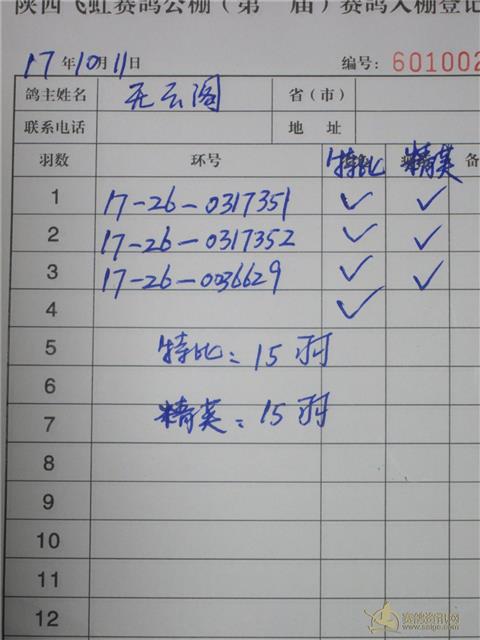 陕西飞虹赛鸽公棚（第 届）赛鸽入棚登记
17年10月11日 编号：601002
鸽主姓名 无云阁 省（市）
联系电话 地 址
羽数 环号 特比 精英 备
1 17-26-0317351 ✓ ✓
2 17-26-0317352 ✓ ✓
3 17-26-0036629 ✓ ✓
4 ✓
5 特比：15羽
6
7 精英：15羽
8
9
10
11
12
赛鸽资讯网
www.saige.com